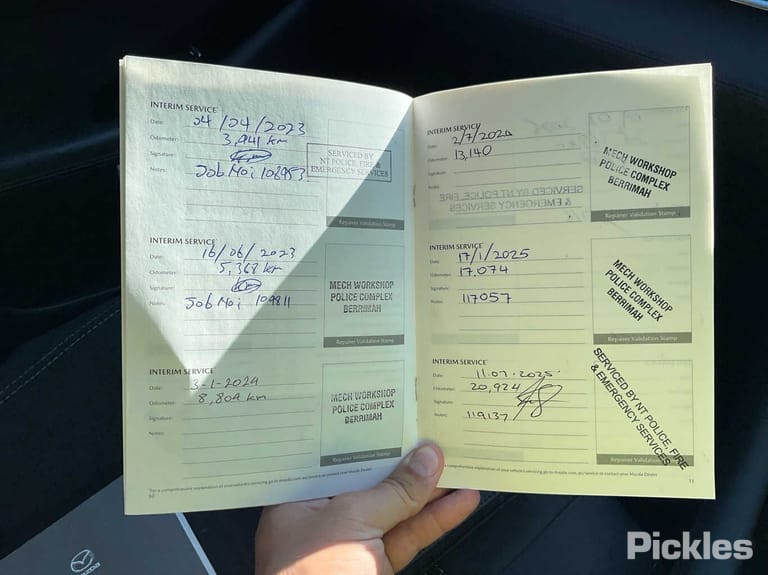 INTERIM SERVICE
Date: 04/04/2023
Odometer: 3,941 km
Signature:
Notes: Job No: 108953
SERVICED BY
NT POLICE, FIRE &
EMERGENCY SERVICES
Repairer Validation Stamp
INTERIM SERVICE
Date: 16/06/2023
Odometer: 5,368 km
Signature:
Notes: Job No: 109811
MECH WORKSHOP
POLICE COMPLEX
BERRIMAH
Repairer Validation Stamp
INTERIM SERVICE
Date: 3-1-2024
Odometer: 8,804 km
Signature:
Notes:
MECH WORKSHOP
POLICE COMPLEX
BERRIMAH
Repairer Validation Stamp
For a comprehensive explanation of your vehicles servicing go to mazda.com.au/service or contact your Mazda Dealer.
10
INTERIM SERVICE
Date: 2/7/2024
Odometer: 13,140
Signature:
Notes:
SERVICED BY NT POLICE, FIRE
& EMERGENCY SERVICES
MECH WORKSHOP
POLICE COMPLEX
BERRIMAH
Repairer Validation Stamp
INTERIM SERVICE
Date: 17/1/2025
Odometer: 17,074
Signature:
Notes: 117057
MECH WORKSHOP
POLICE COMPLEX
BERRIMAH
Repairer Validation Stamp
INTERIM SERVICE
Date: 11.07.2025.
Odometer: 20,924
Signature:
Notes: 119137
SERVICED BY NT POLICE, FIRE
& EMERGENCY SERVICES
Repairer Validation Stamp
For a comprehensive explanation of your vehicles servicing go to mazda.com.au/service or contact your Mazda Dealer.
11
mazda
Pickles